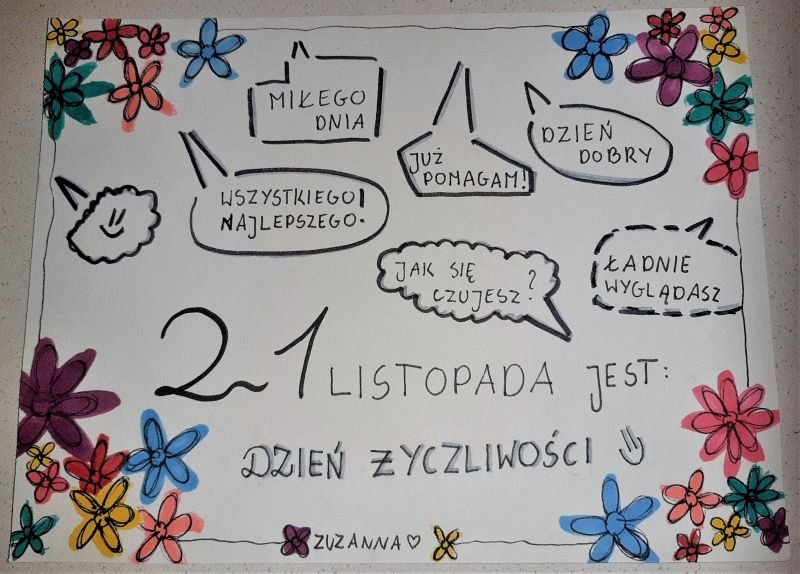 MIŁEGO
DNIA
JUŻ
POMAGAM!
DZIEŃ
DOBRY
WSZYSTKIEGO
NAJLEPSZEGO.
JAK SIĘ
CZUJESZ?
ŁADNIE
WYGLĄDASZ
21 LISTOPADA JEST:
DZIEŃ ŻYCZLIWOŚCI
ZUZANNA♡